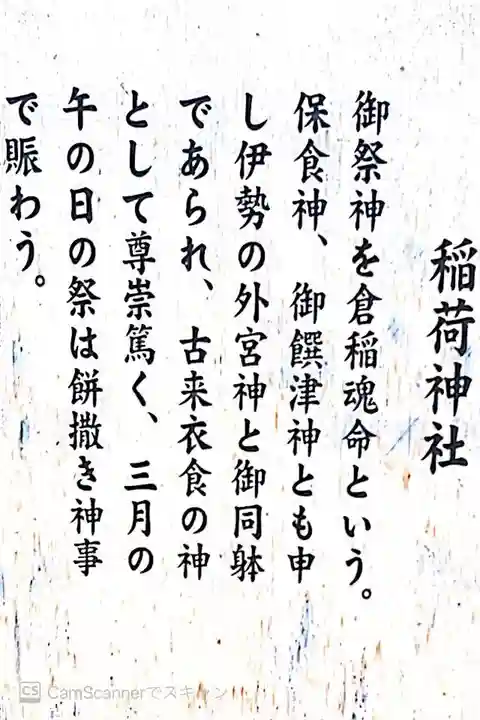 稲荷神社
御祭神を倉稲魂命という。
保食神、御饌津神とも申
し伊勢の外宮神と御同躰
であられ、古来衣食の神
として尊崇篤く、三月の
午の日の祭は餅撒き神事
で賑わう。
CS CamScannerでスキャン